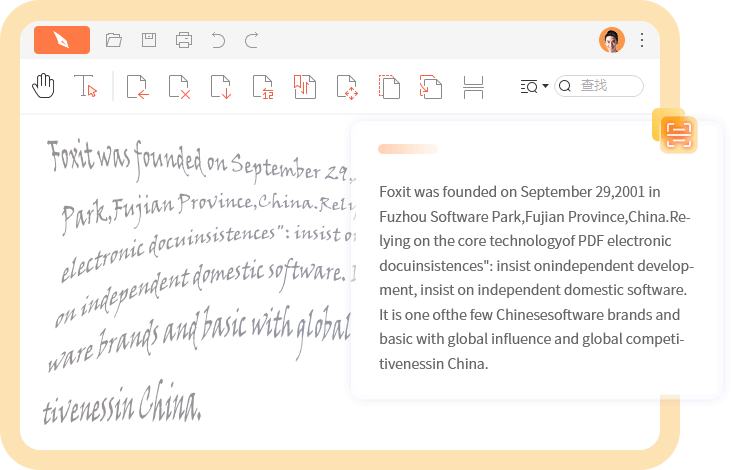 12
查找
Foxit was founded on September 29,
Park,Fujian Province,China.Rely
electronic docuinsistences": insist o
on independent domestic software. I
ware brands and basic with global
tivenessin China.
Foxit was founded on September 29,2001 in
Fuzhou Software Park,Fujian Province,China.Re-
lying on the core technologyof PDF electronic
docuinsistences": insist onindependent develop-
ment, insist on independent domestic software.
It is one ofthe few Chinesesoftware brands and
basic with global influence and global competi-
tivenessin China.